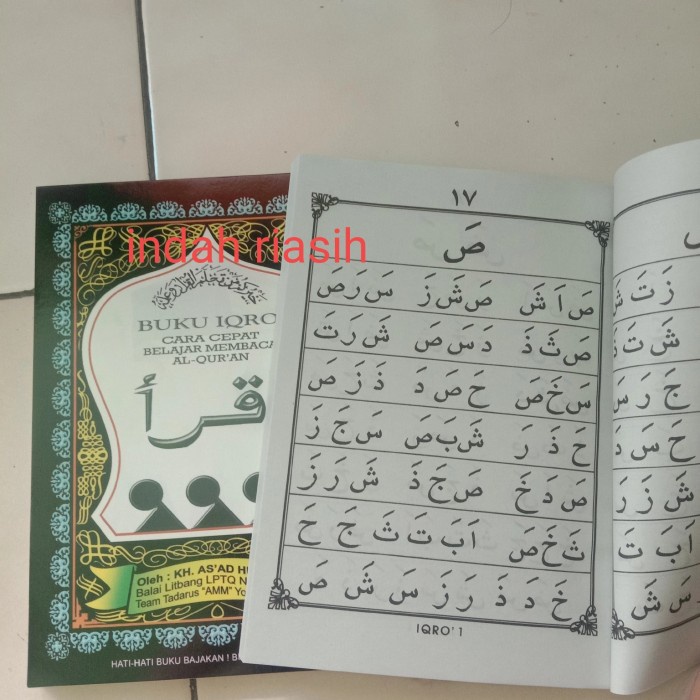 indah riasih
BUKU IQRO
CARA CEPAT
BELAJAR MEMBACA
AL-QUR'AN
قرأ
Oleh : KH. AS'AD
Balai Litbang LPTQ
Team Tadarus "AMM"
HATI-HATI BUKU BAJAKAN !
١٧
صَ
صَ اَ شَ صَ شَ زَ سَ رَ صَ
صَ ثَ ذَ دَ سَ صَ شَ رَ تَ
سَ خَ صَ حَ صَ دَ ذَ زَ صَ
حَ ذَ رَ شَ بَ صَ سَ جَ زَ
صَ دَ خَ صَ جَ ذَ شَ رَ زَ
ثَ خَ صَ اَ بَ تَ ثَ جَ حَ
خَ دَ ذَ رَ زَ سَ شَ صَ
IQRO' 1
زَ تَ
شَ تَ
جَ رَ سَ
حَ سَ دَ
شَ زَ رَ
اَ بَ تَ
سَ شَ